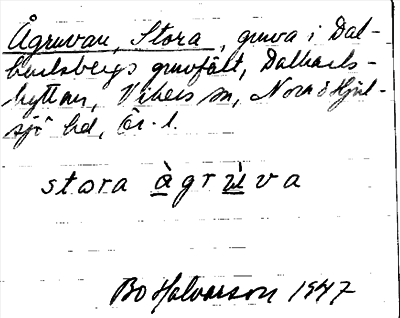 Ågruvan, Stora, gruva i Dal-
karlsbergs gruvfält, Dalkarls-
hyttan, Vikers sn, Nora o Hjul-
sjö bd, Ör. l.
stora àgrùva
Bo Halvarson 1947